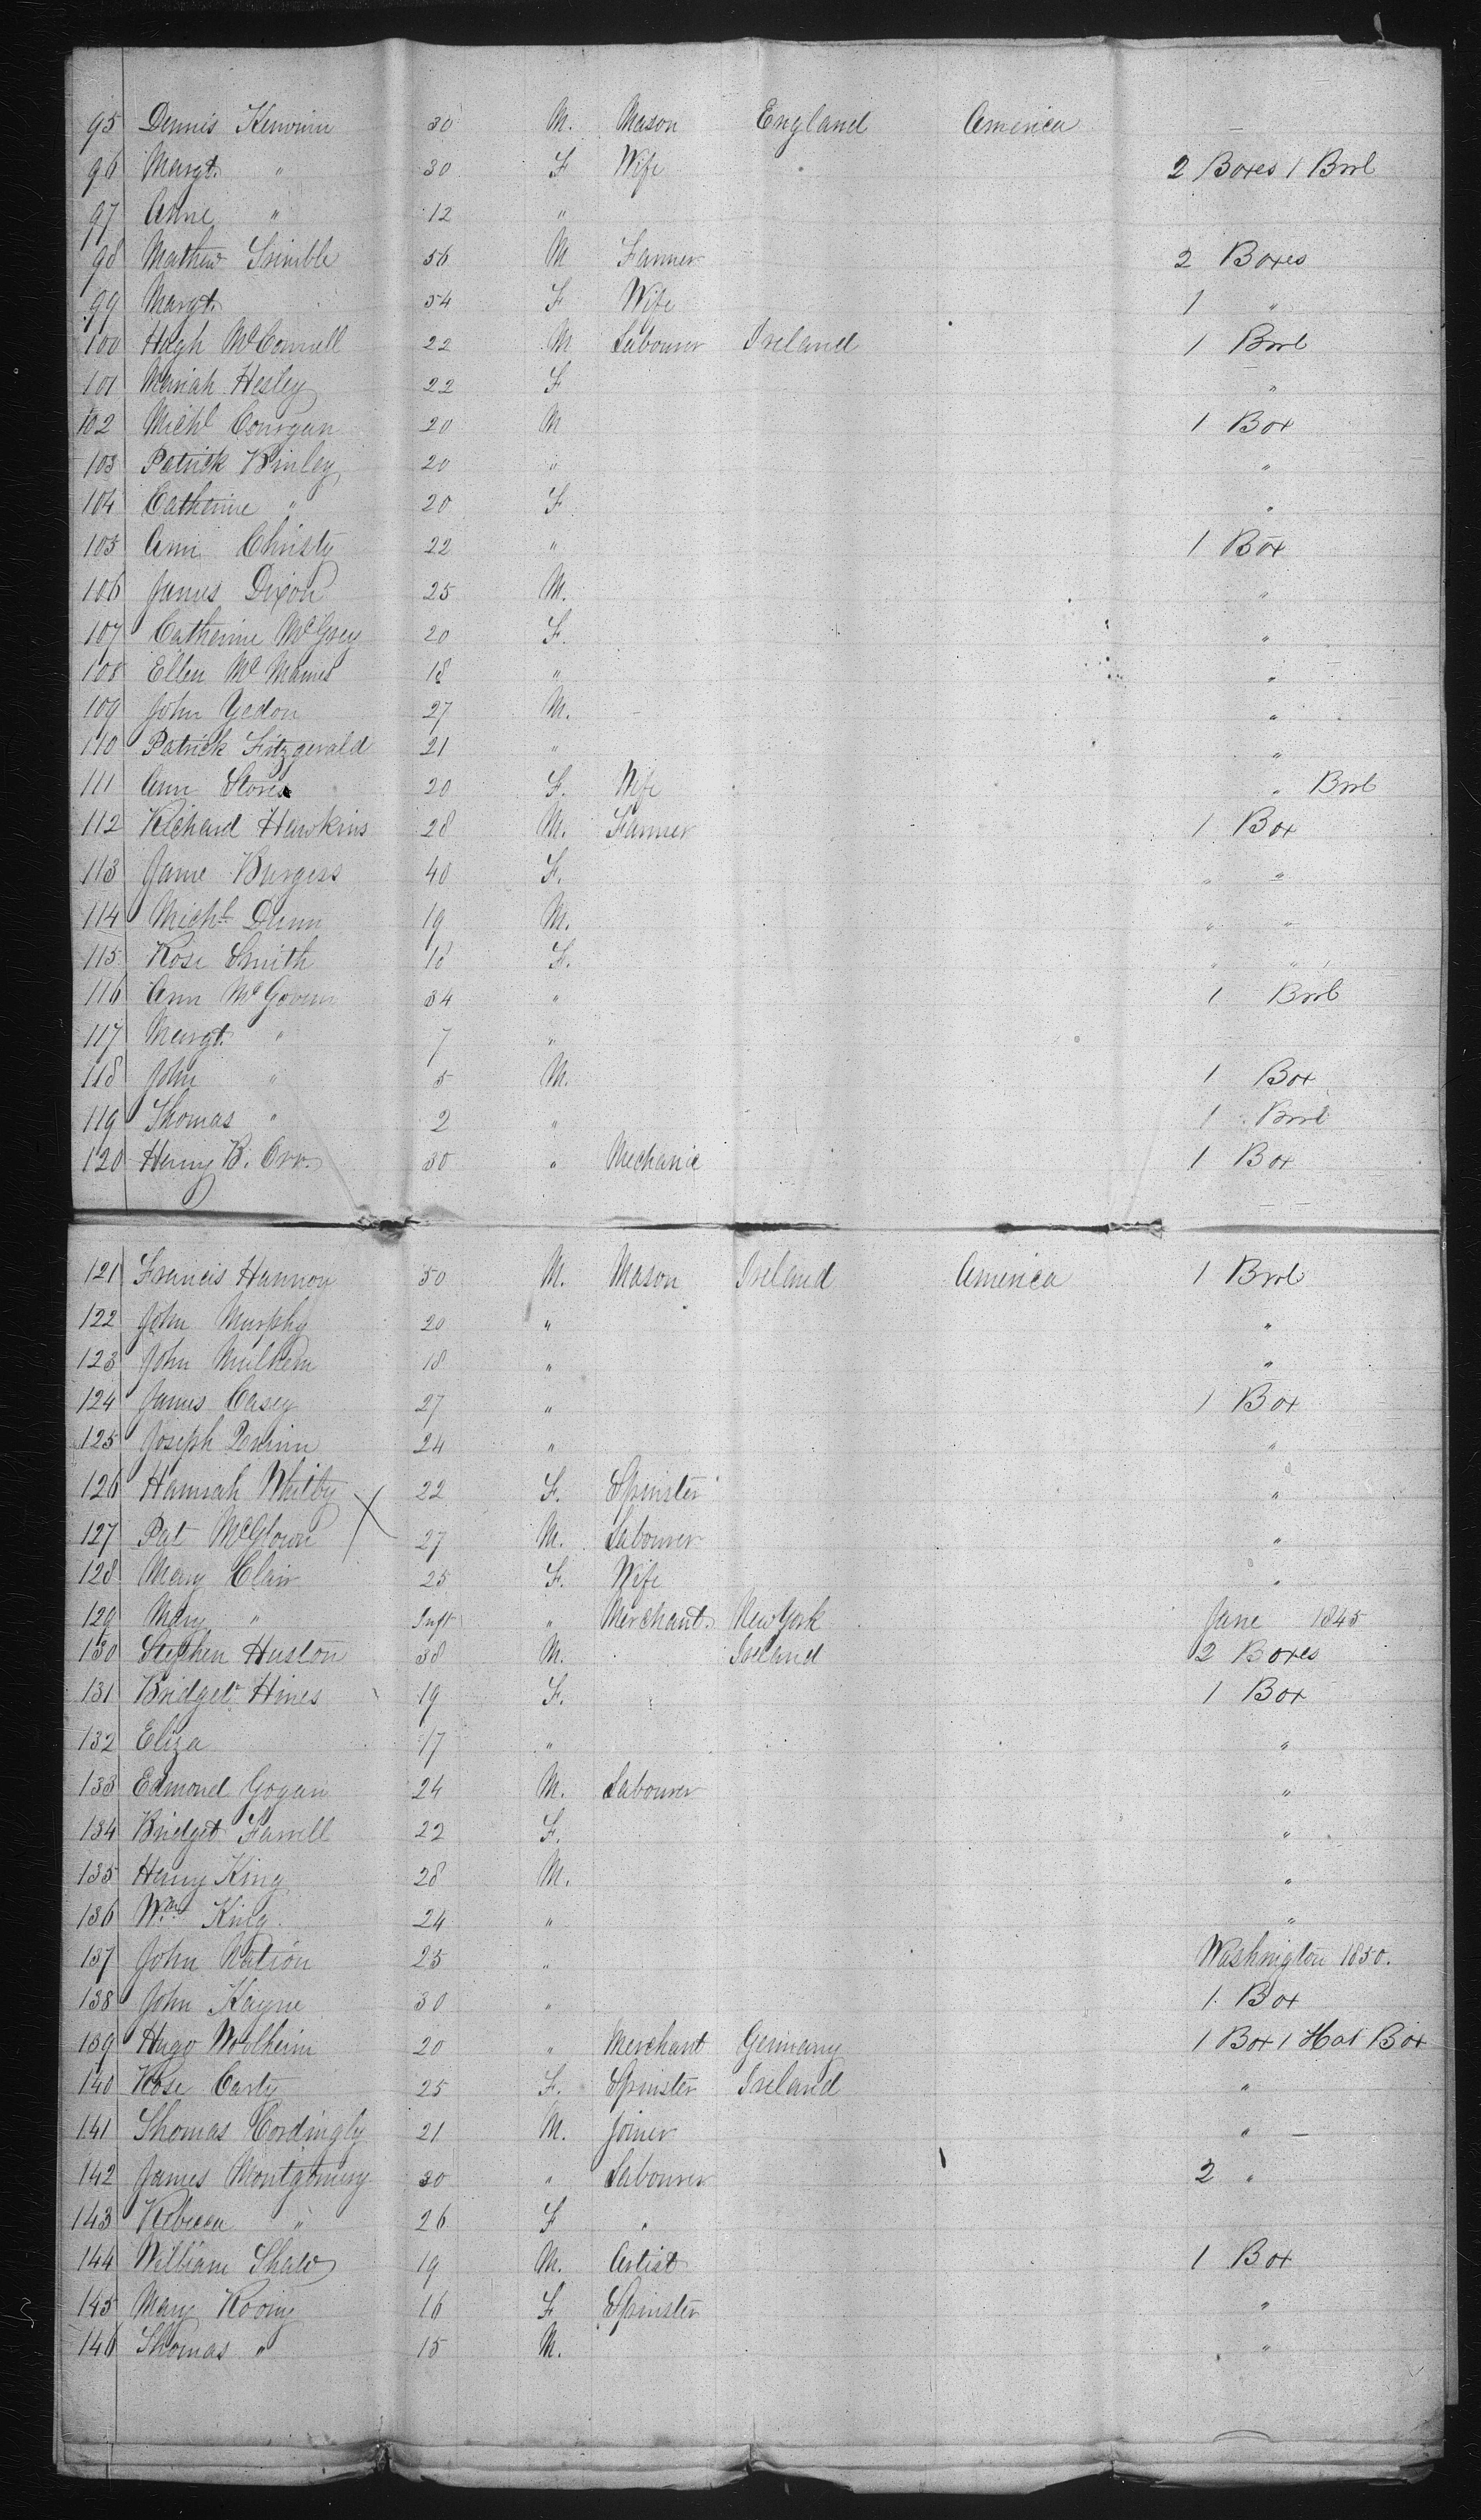 95 Dennis Kerwin 30 M. Mason England America
96 Margt. " 30 F Wife 2 Boxes 1 Brrl
97 Anne " 12 "
98 Mathew Trimble 56 M Farmer 2 Boxes
99 Margt. 54 F Wife 1 "
100 Hugh McConnell 22 M Labourer Ireland 1 Brrl
101 Mariah Hesley 22 F "
102 Michl Corrigan 20 M 1 Box
103 Patrick Binley 20 " "
104 Catherine " 20 F "
105 Ann Christy 22 " 1 Box
106 James Dixon 25 M. "
107 Catherine 20 F. "
108 Ellen McManus 18 " "
109 John 27 M. "
110 Patrick Fitzgerald 21 " "
111 Ann 20 F. Wife " Brrl
112 Richard Hawkins 28 M. Farmer 1 Box
113 Jane Burgess 40 F. " "
114 Michl Dunn 19 M. " "
115 Rose Smith 18 F. " "
116 Ann McGovern 34 " 1 Brrl
117 Margt. " 7 "
118 John " 5 M. 1 Box
119 Thomas " 2 " 1 Brrl
120 Henry B. Orr. 30 " Mechanic 1 Box
121 Francis Hannon 50 M. Mason Ireland America 1 Brrl
122 John Murphy 20 " "
123 John Mulhern 18 " "
124 James Casey 27 " 1 Box
125 Joseph Quinn 24 " "
126 Hannah Whitby 22 F. Spinster "
127 Pat McGlown X 27 M. Labourer "
128 Mary Clair 25 F. Wife "
129 Mary " Inft " Merchant New York June 1845
130 Stephen Huston 38 M. Ireland 2 Boxes
131 Bridget Hines 19 F. 1 Box
132 Eliza 17 " "
133 Edmond Gogan 24 M. Labourer "
134 Bridget Farrell 22 F. "
135 Henry King 28 M. "
136 Wm. King 24 " "
137 John 25 " Washington 1850.
138 John Kayne 30 " 1 Box
139 Hugo Wolheim 20 " Merchant Germany 1 Box 1 Hat Box
140 Rose Carty 25 F. Spinster Ireland "
141 Thomas Cordingly 21 M. Joiner "
142 James Montgomery 30 " Labourer 2 "
143 Rebecca " 26 F "
144 William Shaw 19 M. Artist 1 Box
145 Mary Roony 16 F Spinster "
146 Thomas " 15 M. "